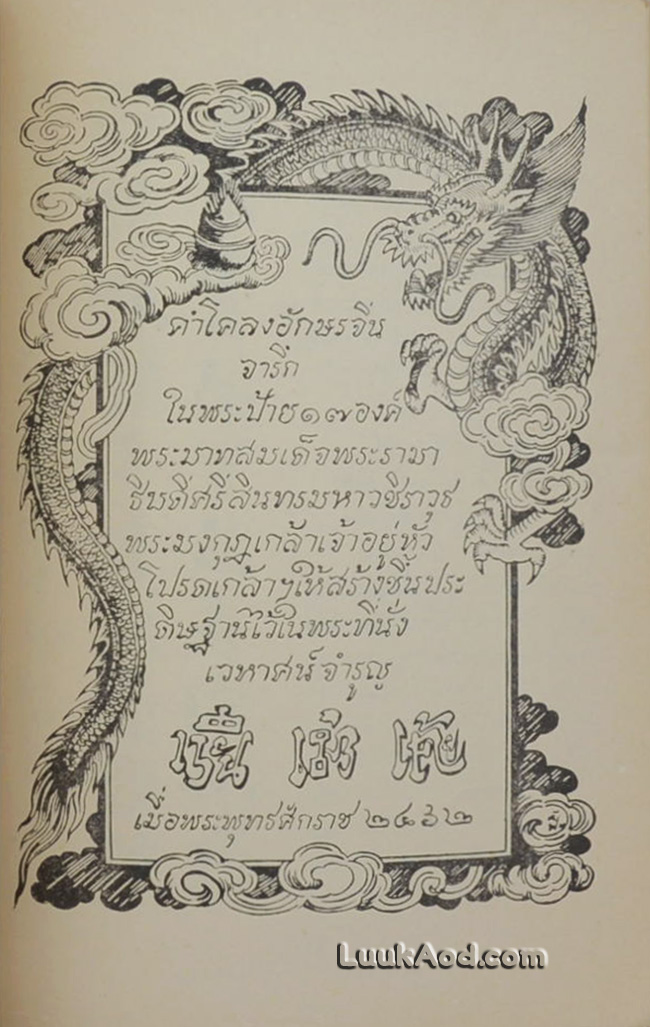 คำโคลงอักษรจีน
จารึก
ในพระป้าย๑๗องค์
พระบาทสมเด็จพระรามา
ธิบดีศรีสินทรมหาวชิราวุธ
พระมงกุฎเกล้าเจ้าอยู่หัว
โปรดเกล้าฯให้สร้างขึ้นประ
ดิษฐานไว้ในพระที่นั่ง
เวหาศน์จำรูญ
เมื่อพระพุทธศักราช ๒๔๖๒
LuukAod.com